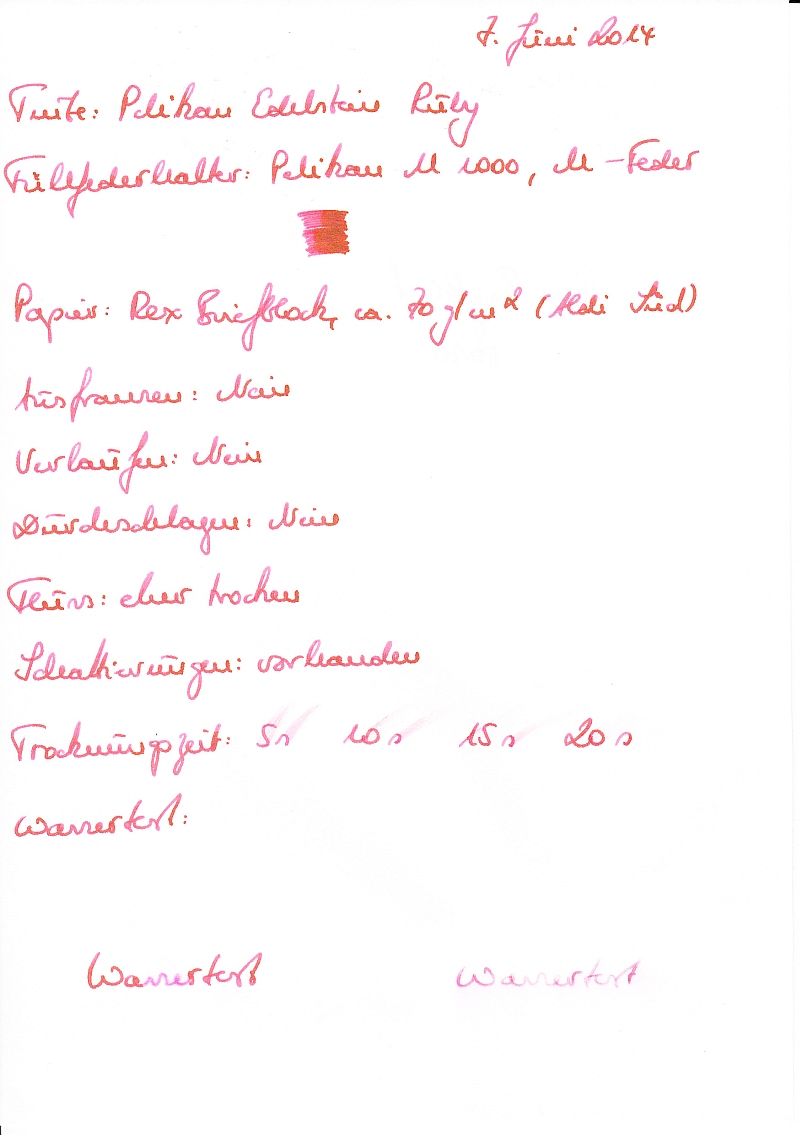 7. Juni 2014
Tinte: Pelikan Edelstein Ruby
Füllfederhalter: Pelikan M 1000, M-Feder
Papier: Rex Briefblock, ca. 70 g/m² (Aldi Süd)
Ausfransen: Nein
Verlaufen: Nein
Durchschlagen: Nein
Fluss: eher trocken
Schattierungen: vorhanden
Trocknungszeit: 5 s 10 s 15 s 20 s
Wassertest:
Wassertest Wassertest